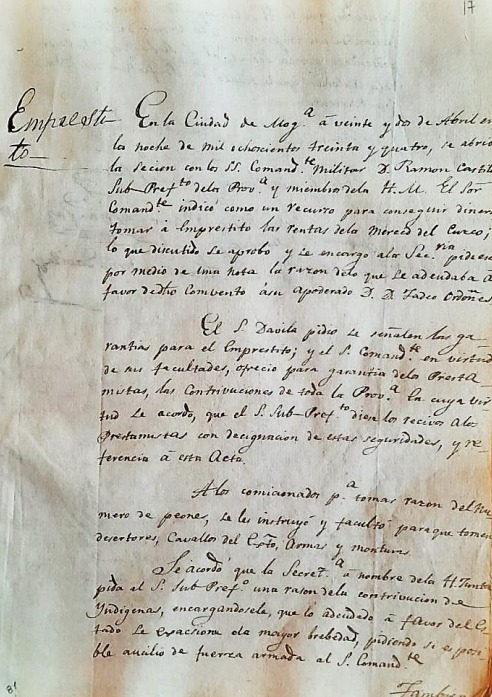 17
Empresti
to
En la Ciudad de Moq.ª à veinte y dos de Abril en
la noche de mil ochosientos treinta y quatro, se abrio
la secion con los SS. Comand.te Militar D. Ramon Castill
Sub-Pref.to dela Prov.ª y miembros dela H. M. El Sor
Comand.te indicó como un recurso para conseguir dinero
tomar à Imprestito las rentas dela Merced del Cuzco;
lo que discutido se aprobo y se encargo ala Sec.ria pidiese
por medio de una nota la razon delo que se adeudaba à
favor de dho Comvento à su apoderado D. D. Tadeo Ordoñes
El S. Davila pidio se señalen las ga-
rantias para el Emprestito; y el S. Comand.te en virtud
de sus facultades, ofrecio para garantia delos Presta-
mistas, las Contrivuciones de toda la Prov.ª En cuya vir
tud se acordo, que el S. Sub-Pref.to diese los recivos alos
Prestamistas con decignacion de estas seguridades, y re-
ferencia à esta Acta.
A los comicionados p.ª tomar razon del Nu
mero de peones, se les instruyó y facultó para que tomen
desertores, Cavallos del Esto, Armas y montura.
Se acordó que la Secret.ª à nombre dela H. Junta
pida al S. Sub Pref.o una rason dela contrivucion de
Yndigenas, encargandosele, que lo adeudado à favor del Es
tado se exacsione dela mayor brebedad, pidiendo si es posi
ble aucilio de fuerza armada al S. Comand.te
Tambien
81